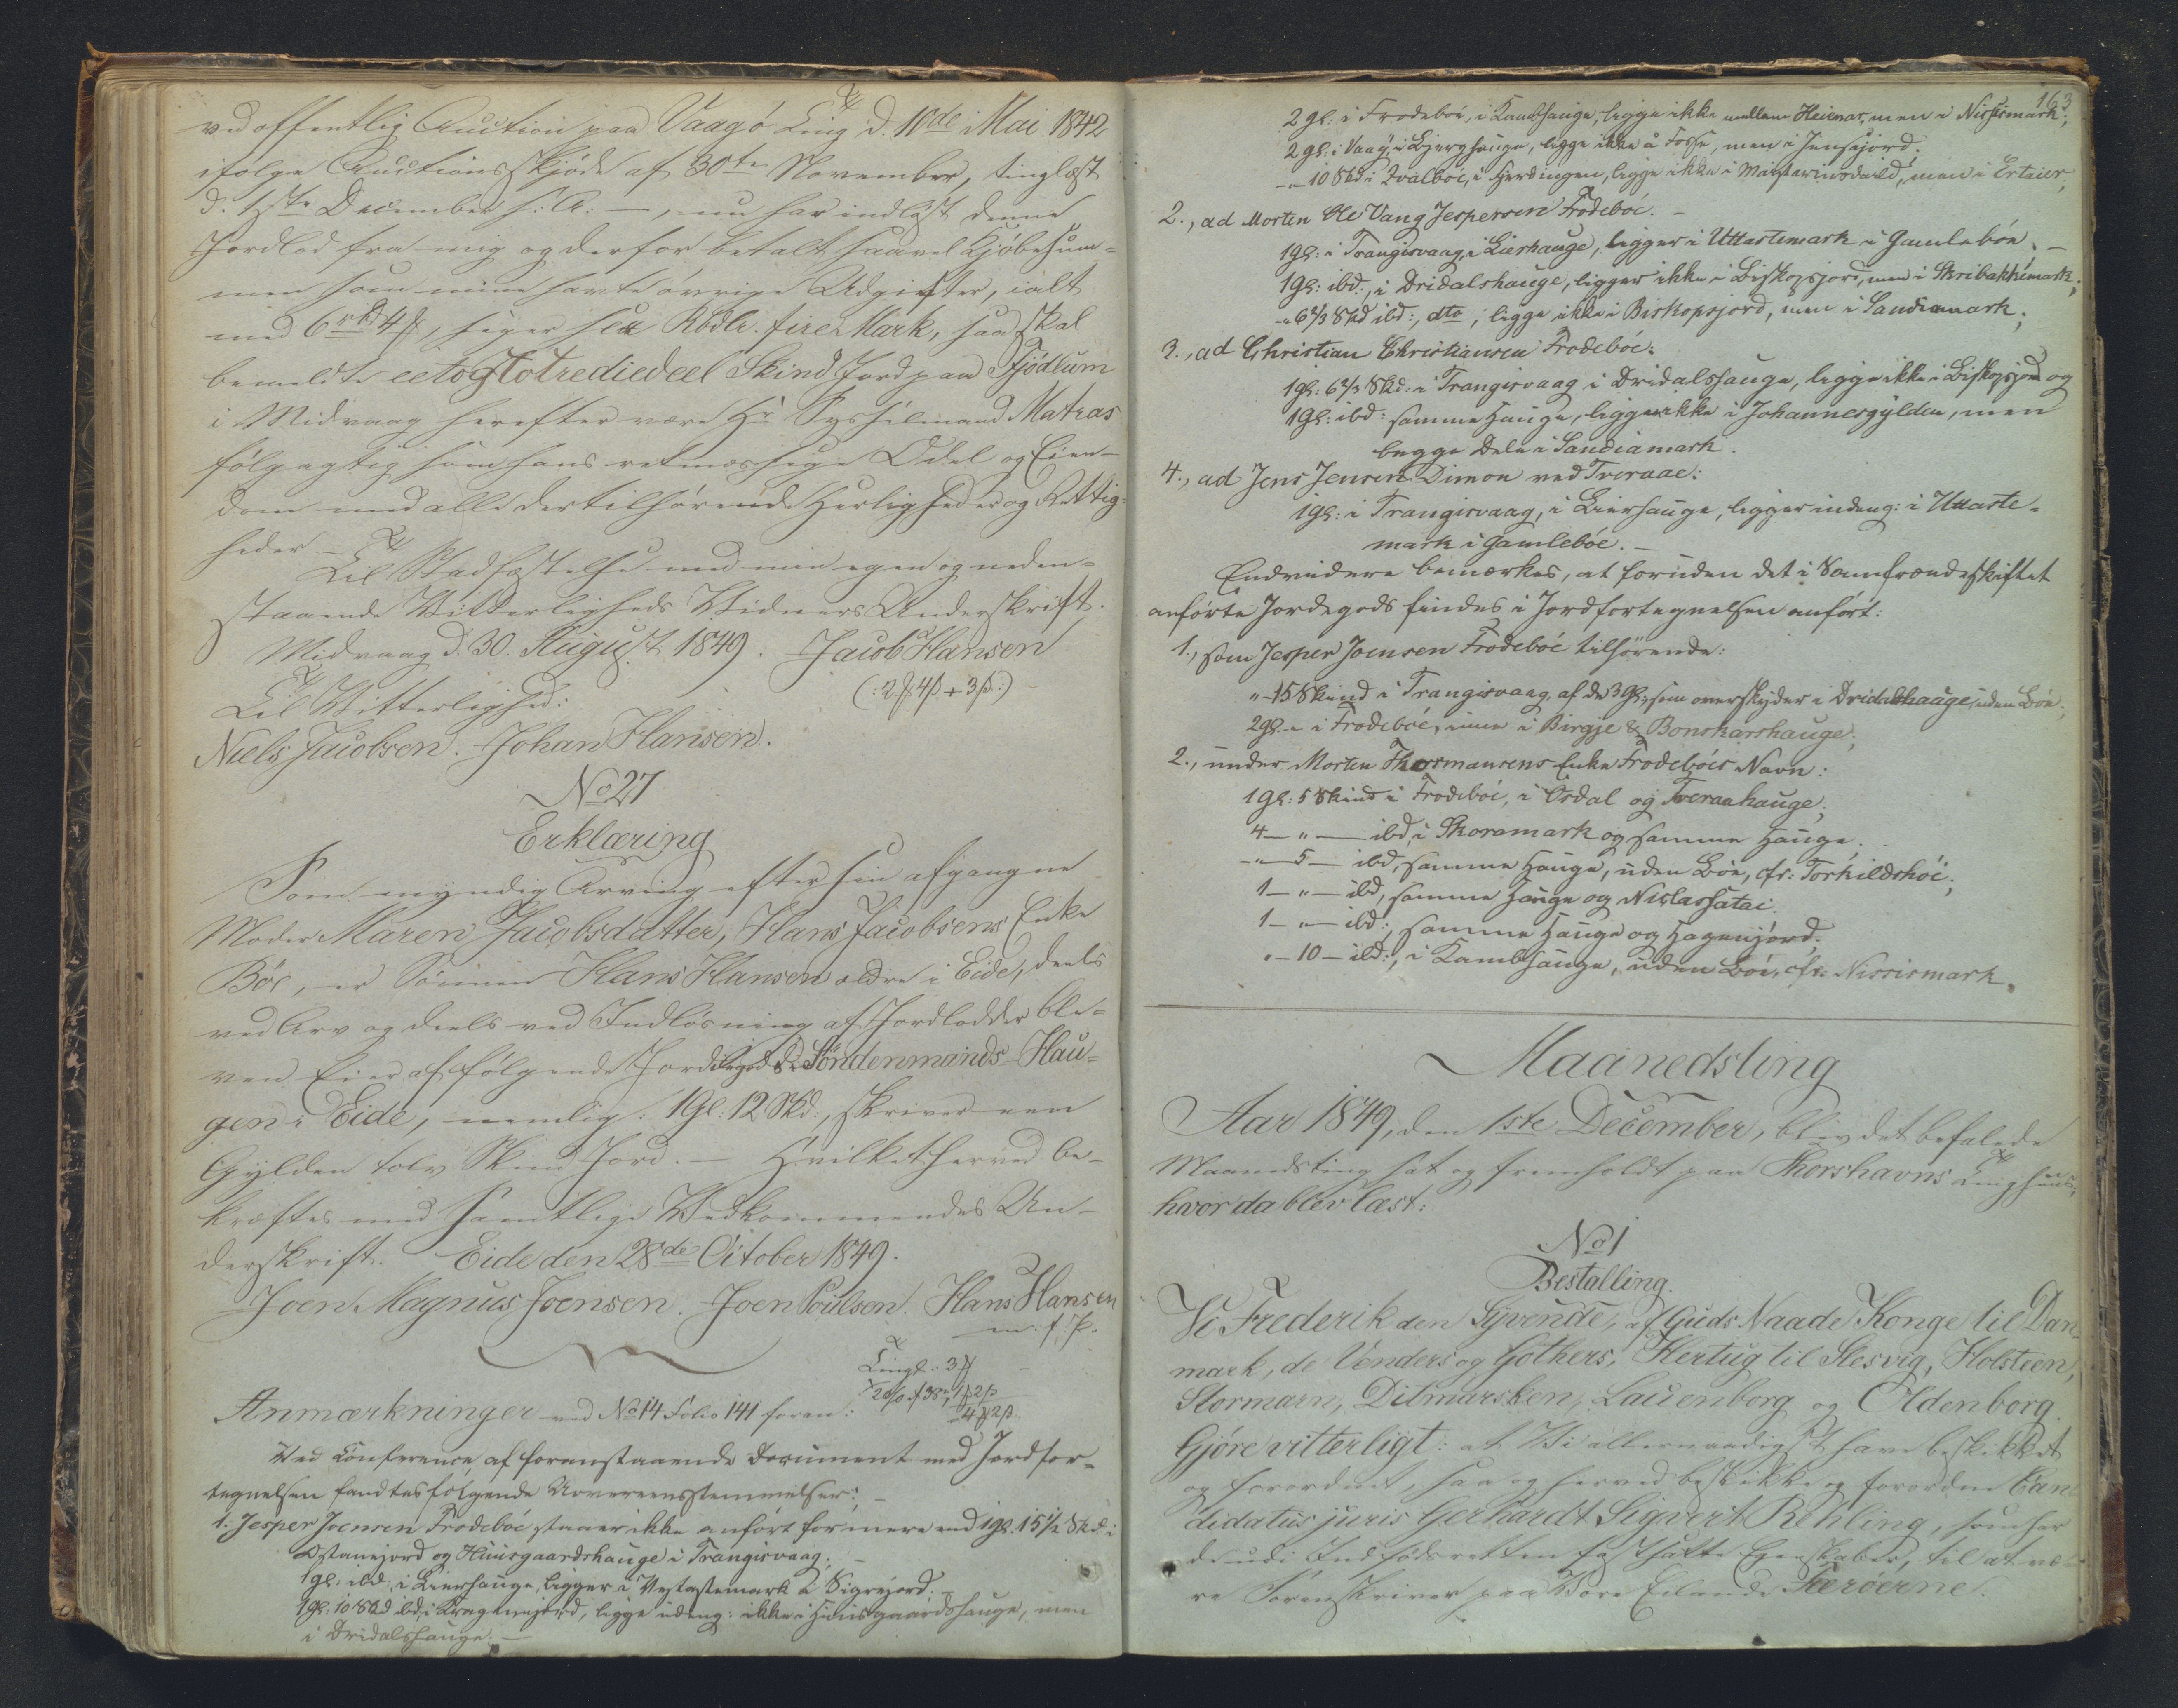 ved offentlig Auction paa Vaagö Ting d. 10de Mai 1842
ifölge Auctionsskjöde af 30te November, tinglæst
d. 1ste December s: A: —, nu har indlöst denne
Jordlod fra mig og derfor betalt saavel Kjöbesum-
men som mine havte övrige Udgifter, ialt
med 6 rbd 4 ₰, siger sex Rbdlr. fire Mark, saa skal
bemeldte eetogtotrediedeel Skind Jord paa Fjödlum
i Midvaag herefter være Hr Sysselmand Matras
følgagtig som hans retmæssige Odel og Eien-
dom med alle dertilhörende Herligheder og Rettig-
heder. —
Til Stadfæstelse med min egen og neden-
staaende Vitterligheds Vidners Underskrift.
Midvaag d. 30. August 1849. Jacob Hansen
Til Vitterlighed: (: 2 ₰ 4 β + 3 β :)
Niels Jacobsen. Johan Hansen.
No 27
Erklæring
Som myndig Arving efter sin afgangne
Moder Maren Jacobsdatter, Hans Jacobsens Enke
Böe, er Sönnen Hans Hansen ældre i Eide, deels
ved Arv og deels ved Indlösning af Jordlodder ble-
ven Eier af følgende Jordegods i Söndenmands-Hau-
gen i Eide, nemlig: 1 Gl: 12 Skd:, skriver een
Gylden tolv Skind Jord. — Hvilket herved be-
kræftes med samtlige Vedkommendes Un-
derskrift. Eide den 28de October 1849.
Joen Magnus Joensen. Joen Poulsen. Hans Hansen
m. f. P.
Tingl: 3 ₰
Anmærkninger ved No 14 Folio 141 foran:
Ved Conference af foranstaaende Document med Jordfor-
tegnelsen fandtes følgende Uovereensstemmelser: —
1. Jesper Joensen Frodeböe staaer ikke anfört for mere end 1 Gl. 15 1/2 Skd: i
Østanejord og Huusgaardshauge i Trangisvaag.
1 Gl: ibd:, i Lierhauge, ligger i Vestastemark a Sigrejord. —
1 Gl: 10 Skd ibd, i Kragenejord, ligge udeng: ikke i Huusgaardshauge, men
i Dridalshauge. —
163
2 Gl: i Frodeböe, i Kambhauge, ligge ikke mellem Heienar, men i Nissismark;
2 Gl: i Vaag, i Bjerghauge, ligge ikke å Fosse, men i Jensajord.
-"- 10 Skd i Qvalböe, i Gjerdingen, ligge ikke i , men i Ertaier;
2., ad Morten Ole Vang Jespersen Frodeböe. —
1 Gl: i Trangisvaag, i Lierhauge, ligger i Uttastemark i Gamleböe. —
1 Gl: ibd:, i Dridalshauge, ligger ikke i Biskopsjord, men i Skribakkemark;
-"- 6 2/3 Skd ibd:, dto, ligge ikke i Biskopsjord, men i Sandiamark;
3., ad Christian Christiansen Frodeböe:
1 Gl: 6 2/3 Skd: i Trangisvaag i Dridalshauge, ligge ikke i Biskopsjord og
1 Gl: ibd: samme Hauge, ligger ikke i Johannesgylden, men
begge Dele i Sandiamark.
4., ad Jens Jensen Dimon ved Tveraae:
1 Gl: i Trangisvaag, i Lierhauge, ligger indeng: i Uttaste-
mark i Gamleböe. —
Endvidere bemærkes, at foruden det i Samfrændeskiftet
anförte Jordegods findes i Jordfortegnelsen anfört:
1., som Jesper Joensen Frodeböe tilhörende:
" - 15 Skind i Trangisvaag, af de 3 Gl:, som overskyder i Dridalshauge, uden Böe;
2 Gl - " i Frodeböe, inne i Birgje & Bonskarshauge;
2., under Morten Thormansens Enke Frodeböes Navn:
1 Gl: 5 Skind i Frodeböe, i Ordal og Tveraahauge;
4 — " — ibd, i Skoramark og samme Hauge;
-"- 5 — ibd, samme Hauge, uden Böe, cfr: Torkildshöi;
1 — " — ibd, samme Hauge og Niclassatai.
1 — " — ibd:, samme Hauge og Hagenjord.
" — 10 — ibd:, i Kambhauge, uden Böe, cfr. Nissismark.
Maanedsting
Aar 1849, den 1ste December, blev det befalede
Maanedsting sat og fremholdt paa Thorshavns Tinghuus,
hvor da blev læst:
No 1
Bestalling.
Vi Frederik den Syvende, af Guds Naade Konge til Dan-
mark, de Venders og Gothers, Hertug til Slesvig, Holsteen,
Stormarn, Ditmarsken, Lauenborg og Oldenborg.
Gjöre vitterligt: at Vi allernaadigst have beskikket
og forordnet, saa og herved beskikke og forordne Can-
didatus juris Gerhardt Sigvert Rehling, som har
de udi Indfødsretten fastsatte Egenskaber, til at væ-
re Sorenskriver paa Vore Eilande Færöerne.